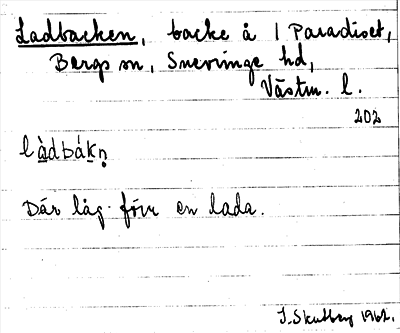 Ladbacken, backe å 1 Paradiset,
Bergs sn, Snevringe hd,
Västm. l.
202
là̱dbák̥ṇ
Där låg förr en lada.
J. Skutberg 1962.